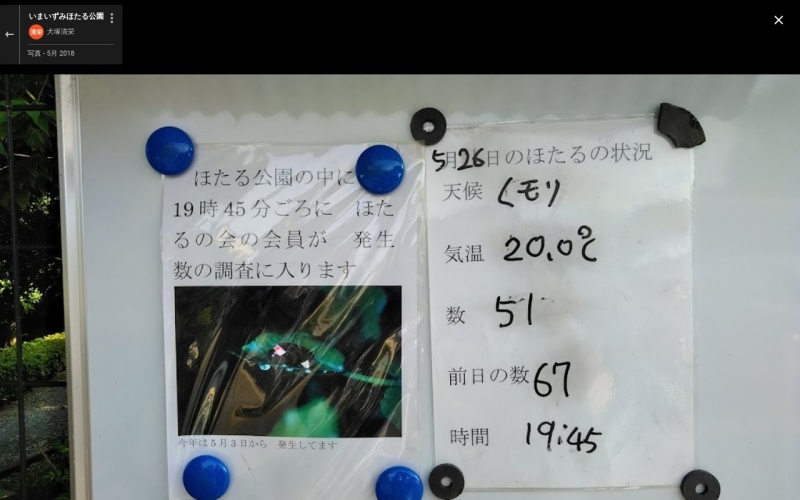 いまいずみほたる公園
清栄 犬塚清栄
写真 - 5月 2018
ほたる公園の中に
19時45分ごろに　ほた
るの会の会員が　発生
数の調査に入ります
今年は5月3日から　発生してます
5月26日のほたるの状況
天候 くモリ
気温 20.0℃
数 51
前日の数 67
時間 19:45